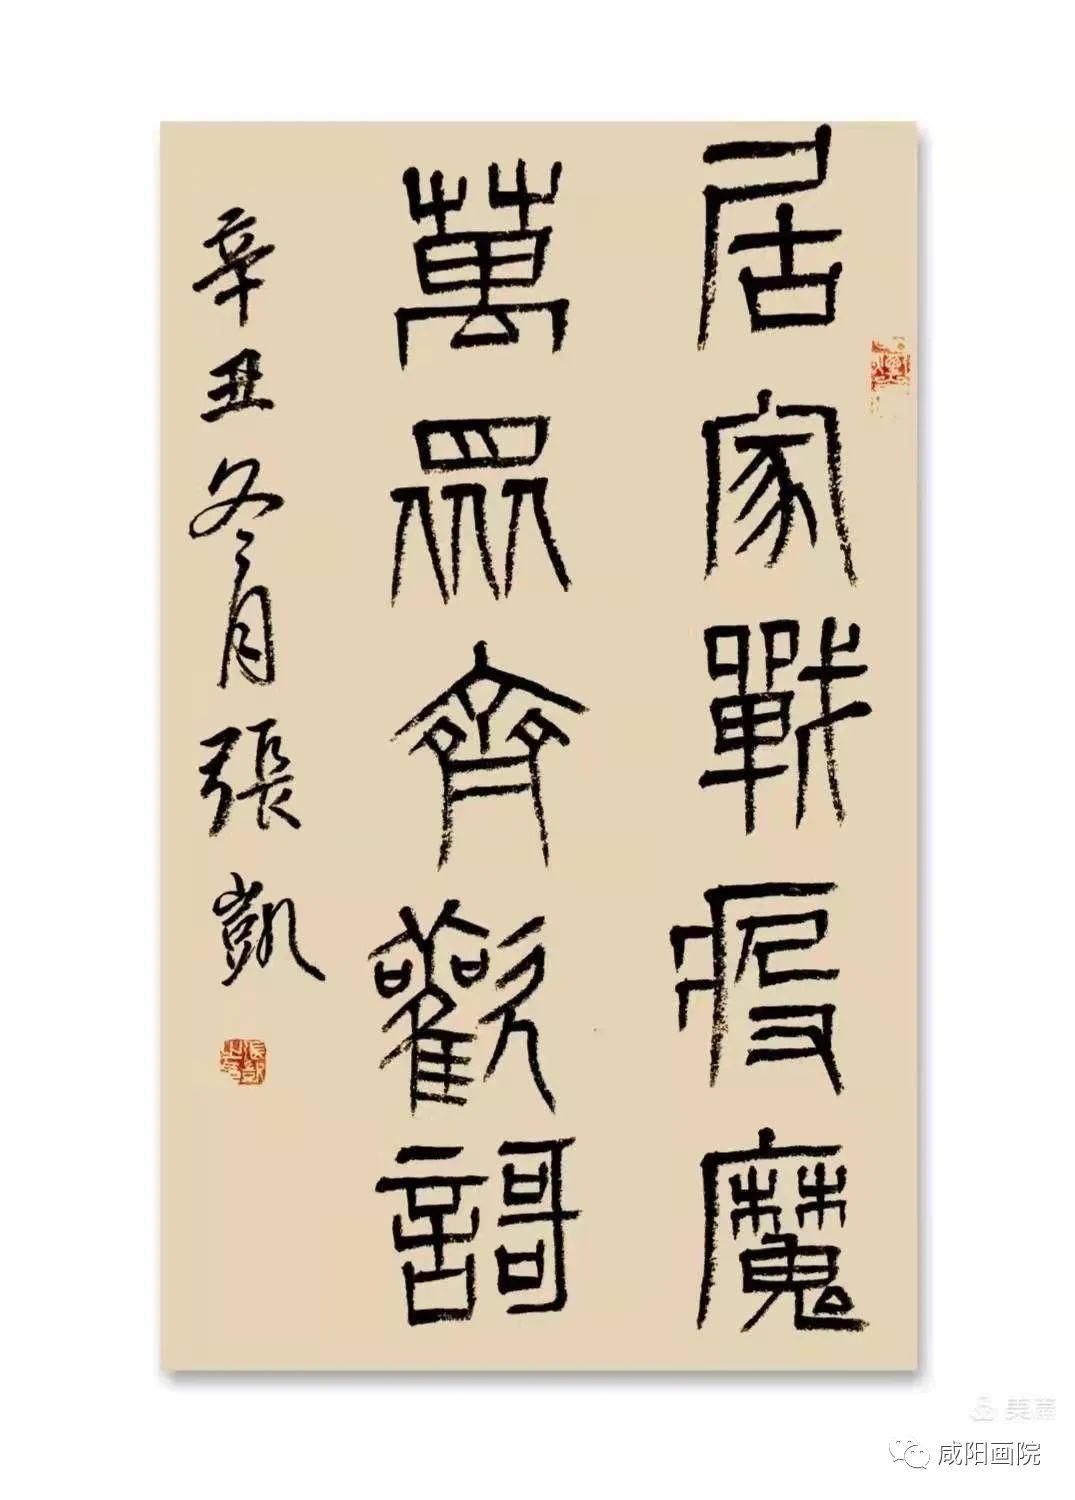 居家戰疫魔
萬眾齊歡謌
辛丑冬月張凱
美篇
咸阳画院